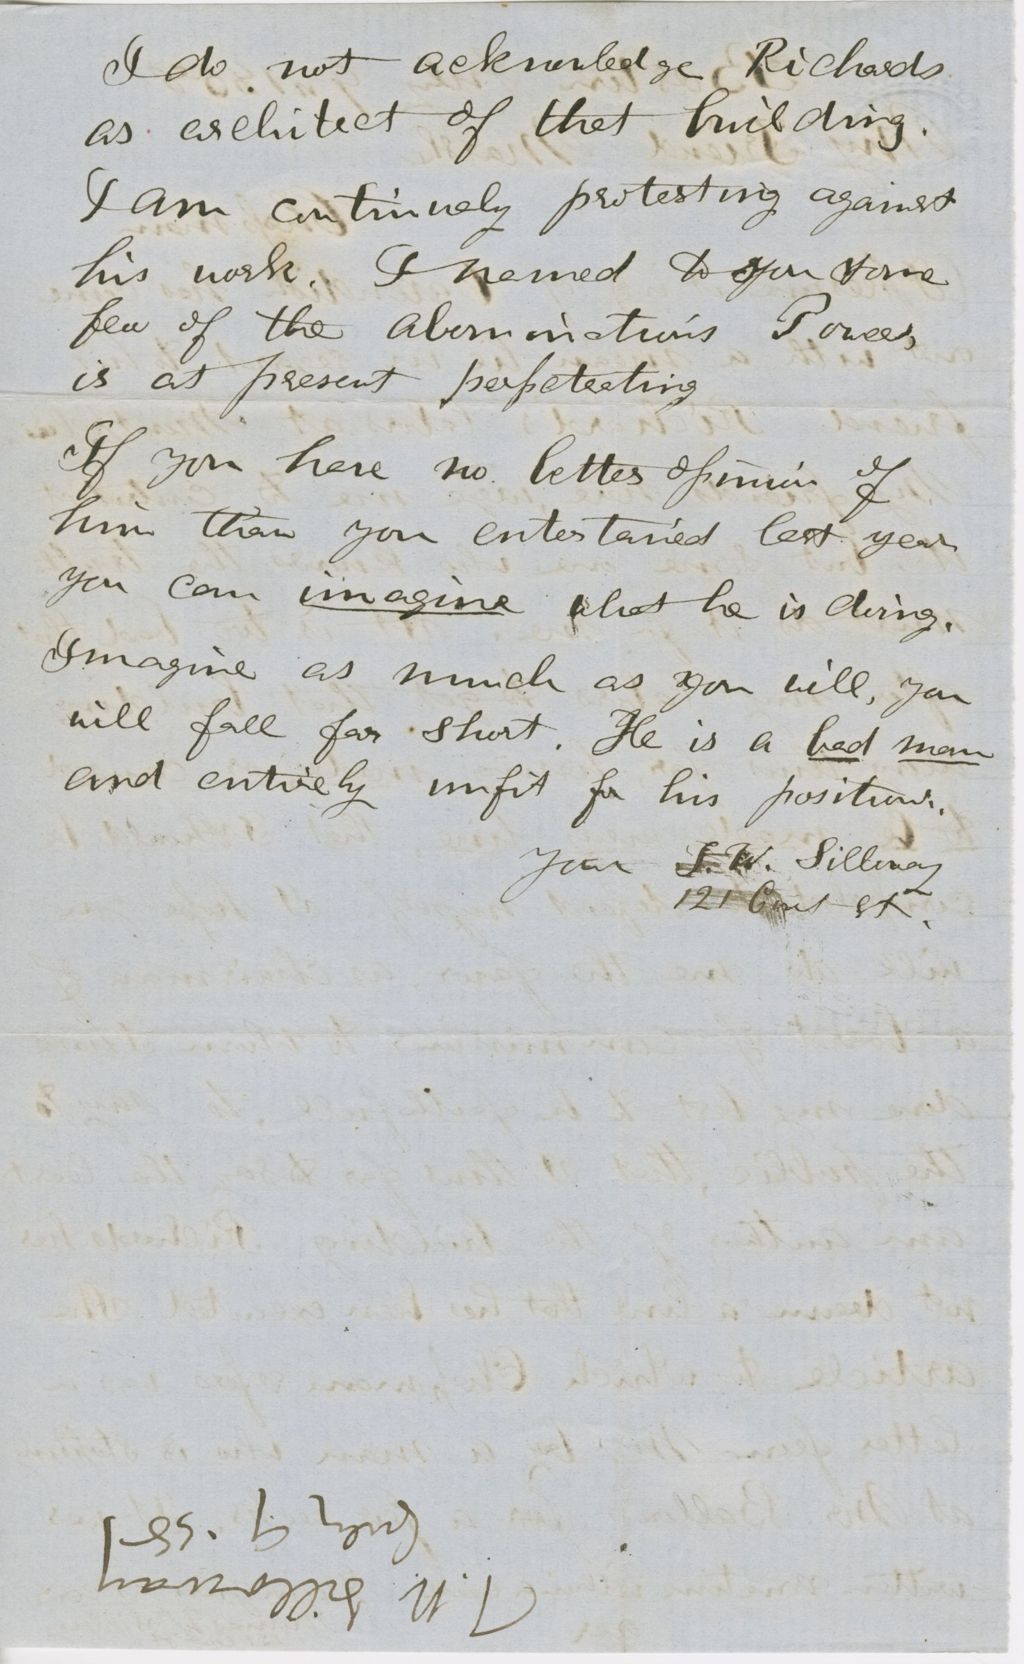 I do not acknowledge Richards
as architect of that building.
I am continuely protesting against
his work. I named to you some
few of the abominations Powers
is at present perpetrating
If you have no better opinion of
him than you entertained last year
you can imagine what he is doing.
Imagine as much as you will, you
will fall far short. He is a bad man
and entirely unfit for his position.
Your T. W. Silloway
121 Court St.
T. W. Silloway
July 9. 58